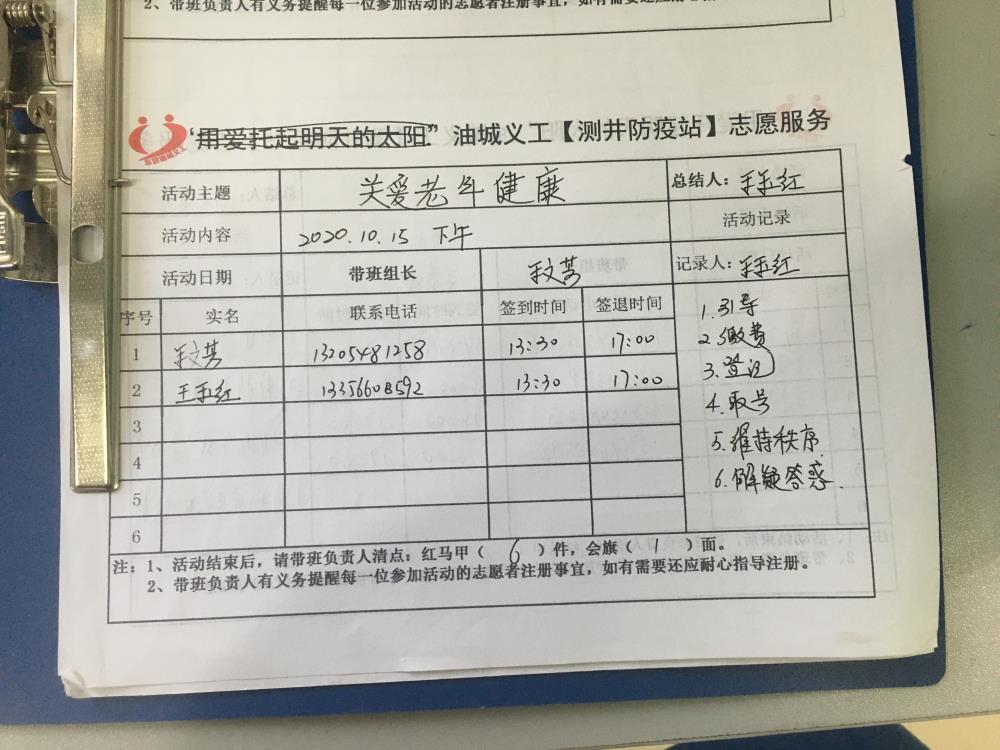 2、带班负责人有义务提醒每一位参加活动的志愿者注册事宜，如有需要还应耐心指导注册。
“用爱托起明天的太阳” 油城义工【测井防疫站】志愿服务
活动主题 关爱老年健康 总结人：王玉红
活动内容 2020.10.15 下午 活动记录
活动日期 带班组长 王文芳 记录人：王玉红
序号 实名 联系电话 签到时间 签退时间
1 王文芳 13205481258 13:30 17:00
2 王玉红 13356608592 13:30 17:00
3
4
5
6
1.引导
2.缴费
3.登记
4.取号
5.维持秩序
6.解疑答惑.
注：1、活动结束后，请带班负责人清点：红马甲（ 6 ）件，会旗（ 1 ）面。
2、带班负责人有义务提醒每一位参加活动的志愿者注册事宜，如有需要还应耐心指导注册。